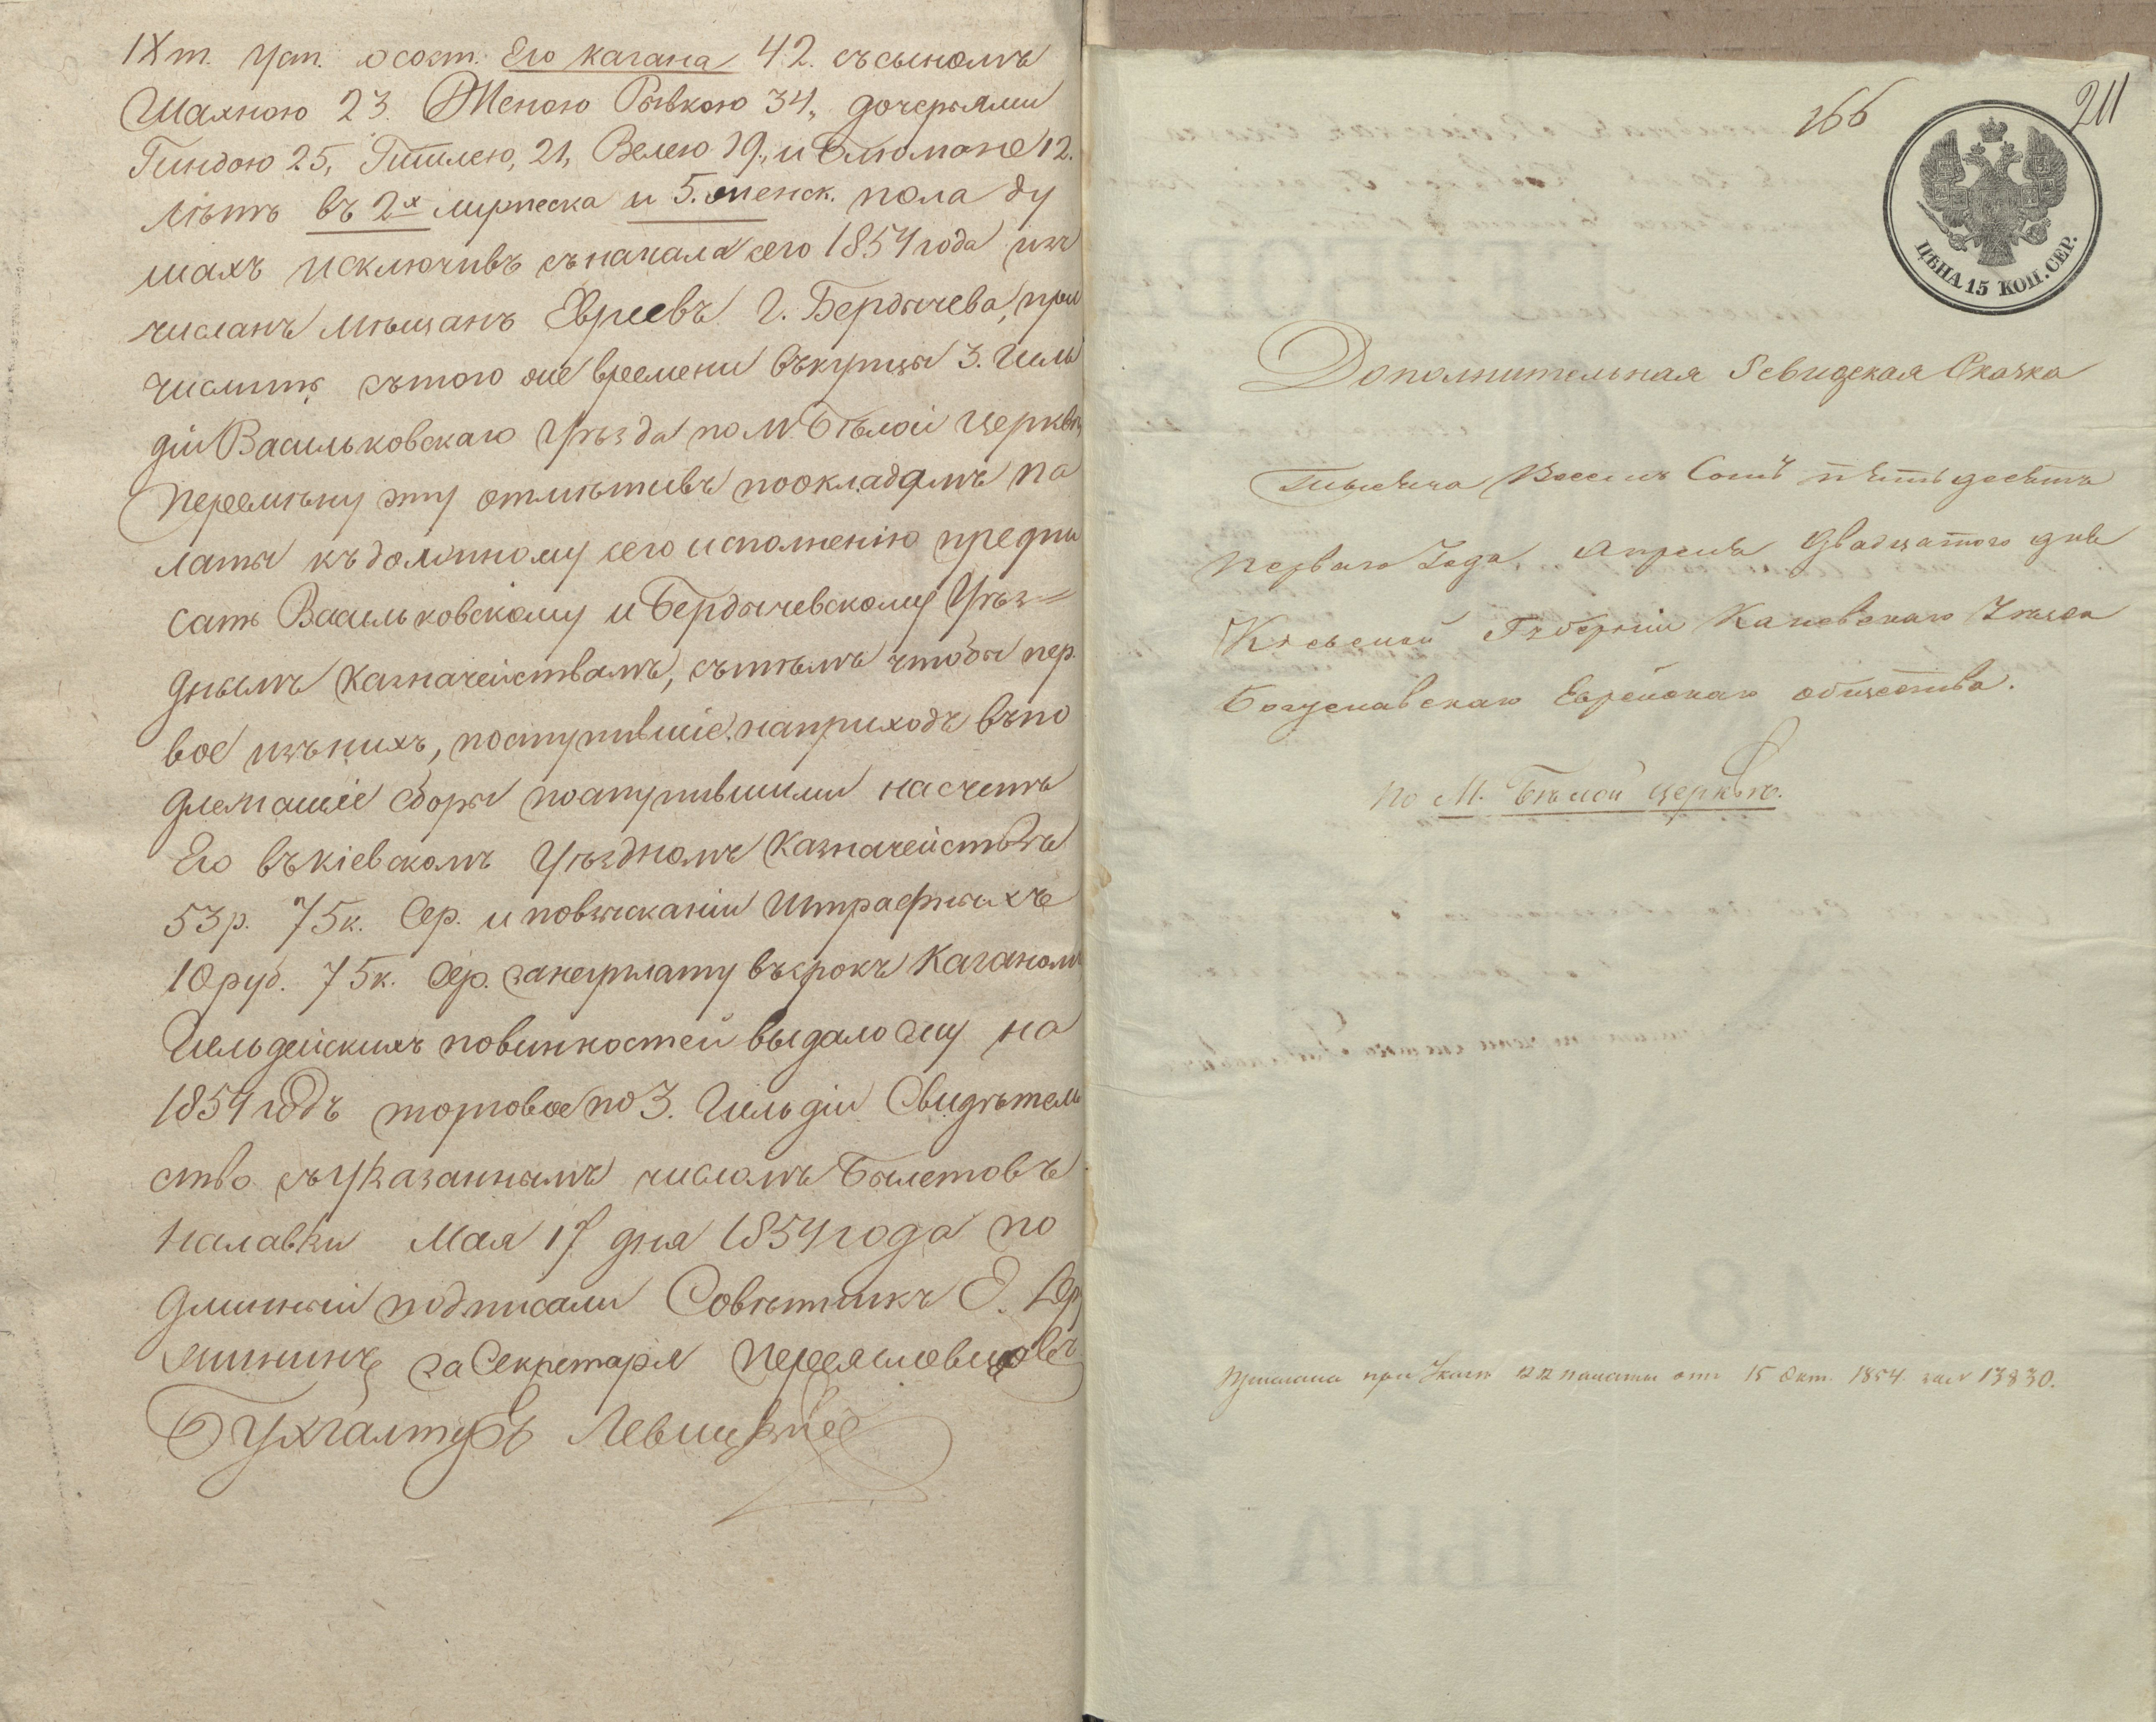 IХ т. Уст. о сост. Его Кагана 42. съ сыномъ
Шахною 23. Женою Рывкою 34, дочерьями
Гиндою 25, Гитлею, 21, Велею 19, и Блюмоне 12.
лѣтъ въ 2х мужеска и 5. женск. пола ду
шахъ исключивъ съ начала сего 1854 года изъ
числанъ мѣщанъ Евреевъ Г. Бердычева, при
числить съ того же времени въ купцы 3. Гиль
діи Васильковскаго Уѣзда по М. Бѣлой Церквѣ
перемѣну эту отмѣтивъ по окладамъ Па
латы къ должному сего исполненію предпи
сать Васильковскому и Бердычевскому Уѣз=
днымъ Казначействамъ, съ тѣмъ чтобы пер
вое изъ нихъ, поступившіе на приходъ въ по
длежащіе сборы поступившими на счетъ
Его въ Кіевскомъ Уѣздномъ Казначействѣ
53 р. 75 к. Сер. и по взысканіи штрафныхъ
10 руб. 75 к. Сер. за неуплату въ срокъ Каганомъ
Гильдейскихъ повинностей выдало ему на
1854 годъ торговое по 3. Гильдіи Свидѣтель
ство съ указаннымъ числомъ Билетовъ
на лавки Мая 17 дня 1854 года по
длинный подписали Совѣтникъ
за Секретаря Переясловцовъ
Бухгалтеръ Левицкій
166
211
ЦѢНА 15 КОП. СЕР.
Дополнительная Ревизская Сказка
Тысяча Восемь Сотъ пятьдесятъ
перваго Года, Апреля двадцатого дня
Кіевской Губерніи Каневскаго Уѣзда
Богуславскаго Еврейскаго общества.
по М. Бѣлой Церквѣ.
Прислана при Указѣ КК палаты отъ 15 Окт. 1854. за № 13830.